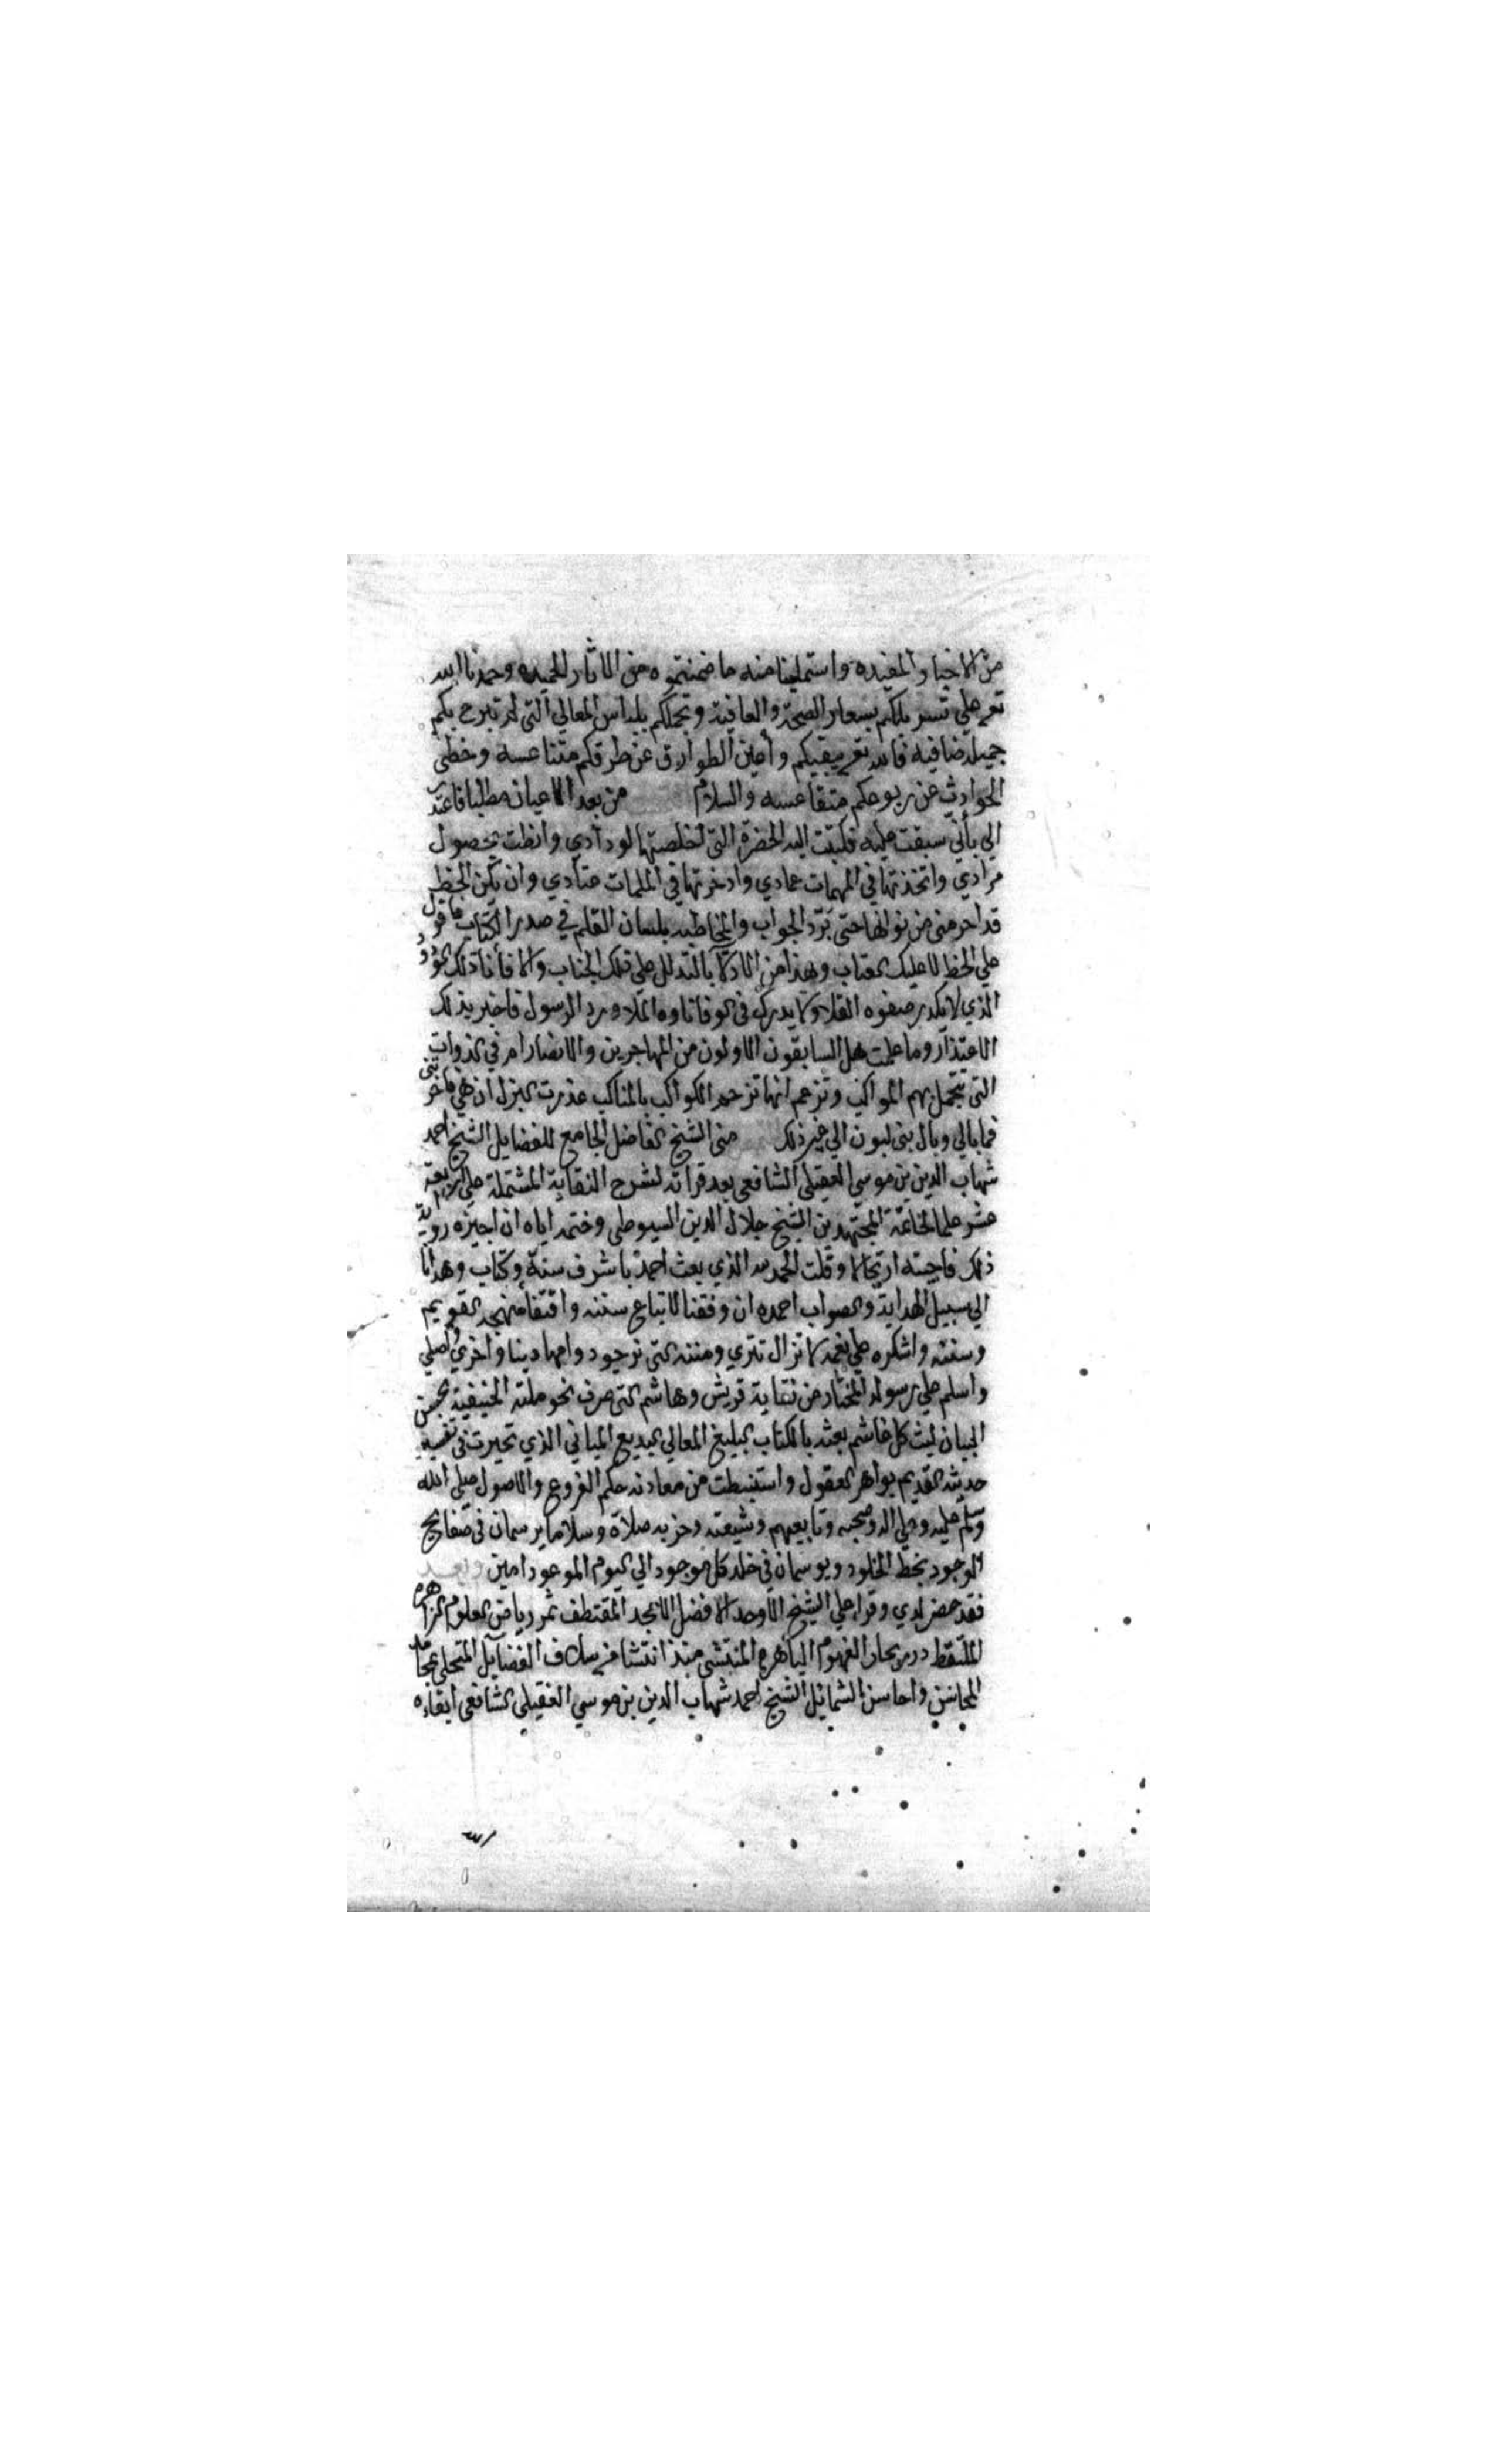 من الاخبار المفيده واستملينا منه ما ضمنتموه من الاثار الحميده وحمدنا الله
تعالى على تسربلكم بسعار الصحة والعافية وتجملكم بلباس المعالي التي لم تبرح بكم
جميلة ضافيه فالله تعالى يبقيكم واعين الطوارق عن طرقكم متناعسه وخطى
الحوادث عن ربوعكم متقاعسه والسلام من بعد الاعيان مطلبا فاعتذر
الي بأني سبقت عليه فكتبت اليه الحضرة التي اخلصتها لودادي وانطت بحصول
مرادي واتخذتها في المهمات عمادي وادخرتها في الملمات عتادي وان يكن الحظ
قد احرمني من نوالها حتى برد الجواب والمخاطبه بلسان القلم في صدر الكتاب فاقول
علي الحظ لا عليك العتاب وهذا من الادلال بالتدلل على تلك الجناب والا فأنا ذلك الودود
الذي لا يكدر صفوه القلا ولا يدرك في الوفا شاوه الملا ورد الرسول فاخبر بذلك
الاعتذار وما علمت هل السابقون الاولون من المهاجرين والانصار ام في الذوات
التي تتجمل بهم المواكب وتزعم انها تزحم الكواكب بالمناكب عذرت البزل ان هي خاطرتني
فما بالي وبال بني لبون الي غير ذلك مني الشيخ الفاضل الجامع للفضايل الشيخ احمد
شهاب الدين بن موسي العقيلي الشافعي بعد قراته لشرح النقاية المشتملة علي اربعة
عشر علما لخاتمة المجتهدين الشيخ جلال الدين السيوطي وختمه اياه ان اجيزه رواية
ذلك فاجبته ارتجالا وقلت الحمد لله الذي بعث احمد باشرف سنة وكتاب وهدانا
الي سبيل الهداية والصواب احمده ان وفقنا لاتباع سننه واقتفا منهجه القويم
وسننه واشكره علي نعمه لا تزال تتري ومننه التي نرجو دوامها دينا واخري واصلي
واسلم علي رسوله المختار من نقاية قريش وهاشم التي صرف نحو ملته الحنيفية بحسن
البيان ليث كل غاشم بعثه بالكتاب البليغ المعالي البديع المباني الذي تحيرت في تفسير
حديثه القديم بواهر العقول واستنبطت من معادنه حكم الفروع والاصول صلي الله
وسلم عليه وعلي اله وصحبه وتابعيهم وشيعته وحزبه صلاة وسلاما يرسمان في صفايح
الوجود بخط الخلود ويوسمان في خلد كل موجود الي اليوم الموعود امين وبعد
فقد حضر لدي وقرا علي الشيخ الاوحد الافضل الامجد المقتطف ثمر رياض العلوم الزاهره
الملتقط درر بحار الفهوم الباهره المنتشي منذ انتشا من سلاف الفضايل المتحلي بمحامد
المحاسن واحاسن الشمائل الشيخ احمد شهاب الدين بن موسي العقيلي الشافعي ابقاه
الله